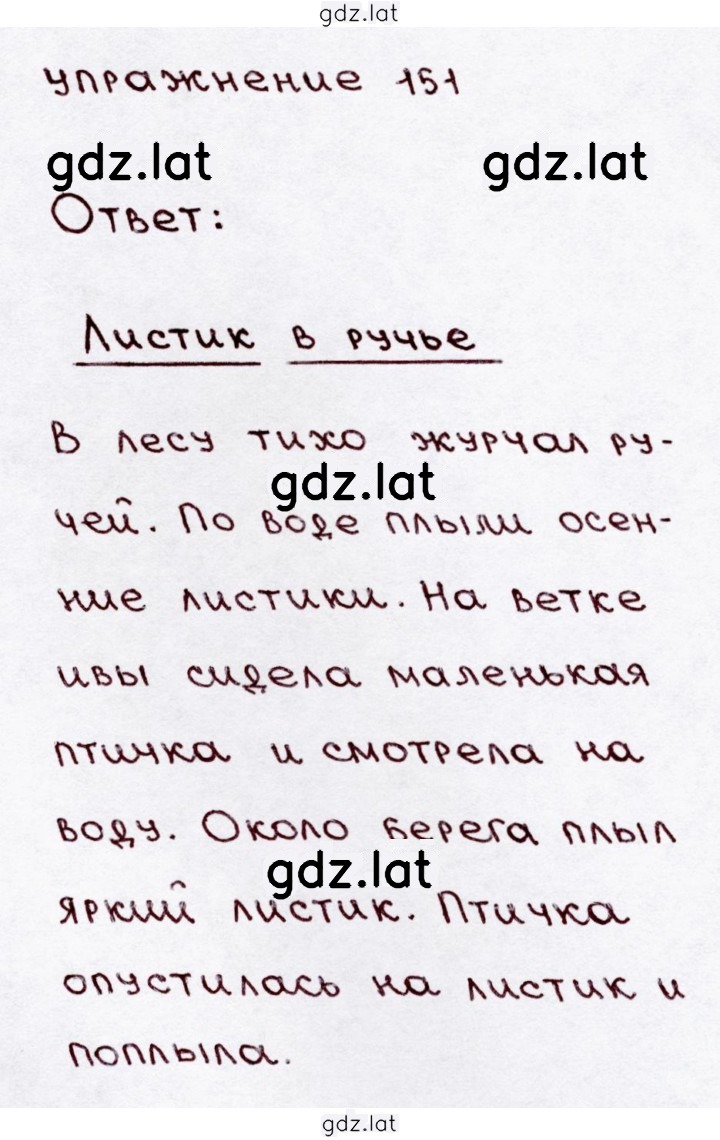 gdz.lat
упражнение 151
gdz.lat gdz.lat
Ответ:
Листик в ручье
В лесу тихо журчал ру-
gdz.lat
чей. По воде плыли осен-
ние листики. На ветке
ивы сидела маленькая
птичка и смотрела на
воду. Около берега плыл
gdz.lat
яркий листик. Птичка
опустилась на листик и
поплыла.
gdz.lat